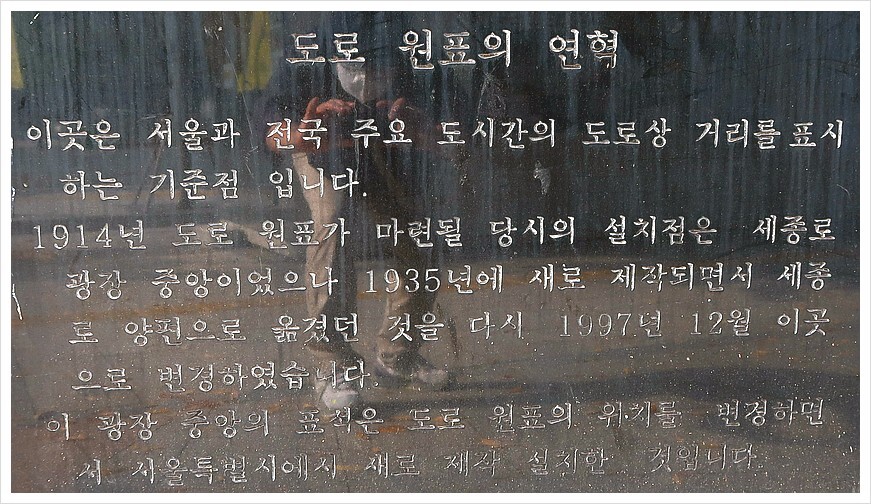 도로 원표의 연혁
이곳은 서울과 전국 주요 도시간의 도로상 거리를 표시
하는 기준점 입니다.
1914년 도로 원표가 마련될 당시의 설치점은 세종로
광장 중앙이었으나 1935년에 새로 제작되면서 세종
로 양편으로 옮겼던 것을 다시 1997년 12월 이곳
으로 변경하였습니다.
이 광장 중앙의 표석은 도로 원표의 위치를 변경하면
서 서울특별시에서 새로 제작 설치한 것입니다.